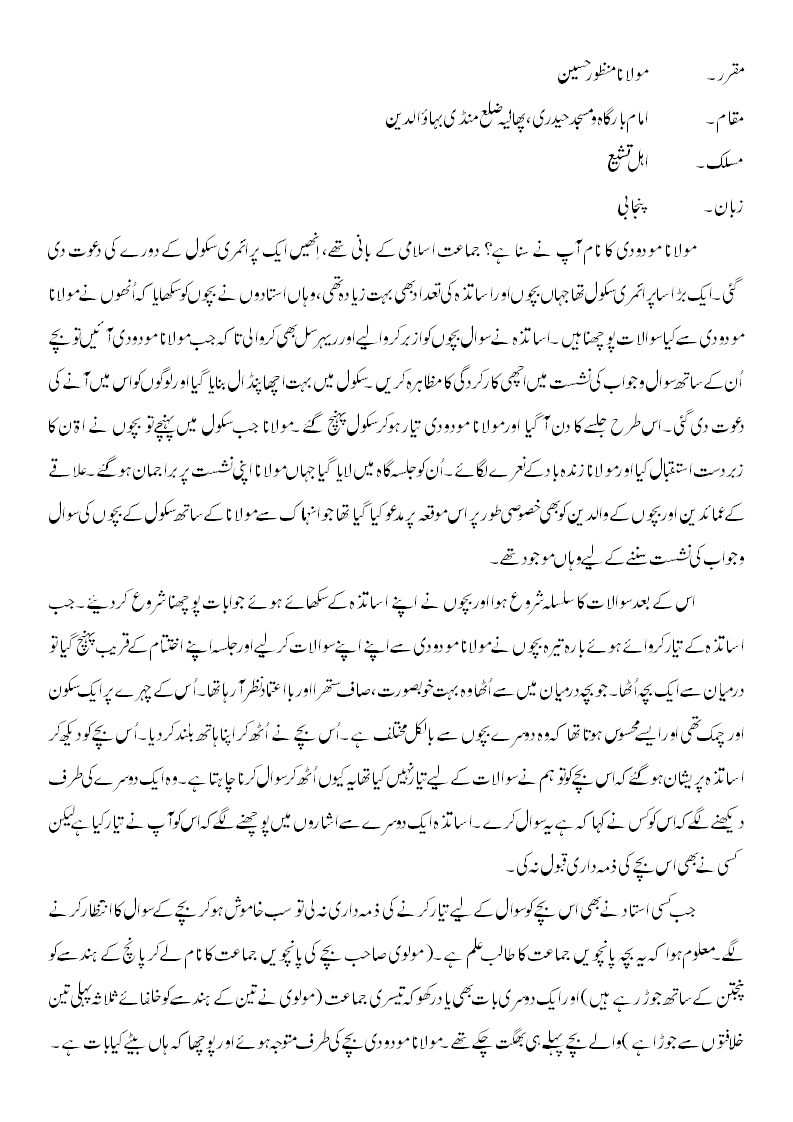 مقرر۔ مولانا منظور حسین
مقام۔ امام بارگاہ و مسجد حیدری، پھالیہ ضلع منڈی بہاؤالدین
مسلک۔ اہل تشیع
زبان۔ پنجابی
مولانا مودودی کا نام آپ نے سنا ہے؟ جماعت اسلامی کے بانی تھے، اِنھیں ایک پرائمری سکول کے دورے کی دعوت دی
گئی۔ ایک بڑا سا پرائمری سکول تھا جہاں بچوں اور اساتذہ کی تعداد بھی بہت زیادہ تھی، وہاں استادوں نے بچوں کو سکھایا کہ اُنھوں نے مولانا
مودودی سے کیا سوالات پوچھنا ہیں۔ اساتذہ نے سوال بچوں کو ازبر کروا لیے اور ریہرسل بھی کروا لی تاکہ جب مولانا مودودی آئیں تو بچے
اُن کے ساتھ سوال و جواب کی نشست میں اچھی کارکردگی کا مظاہرہ کریں۔ سکول میں بہت اچھا پنڈال بنایا گیا اور لوگوں کو اس میں آنے کی
دعوت دی گئی۔ اس طرح جلسے کا دن آ گیا اور مولانا مودودی تیار ہو کر سکول پہنچ گئے۔ مولانا جب سکول میں پہنچے تو بچوں نے کا
زبردست استقبال کیا اور مولانا زندہ باد کے نعرے لگائے۔ اُن کو جلسہ گاہ میں لایا گیا جہاں مولانا اپنی نشست پر براجمان ہو گئے۔ علاقے
کے عمائدین اور بچوں کے والدین کو بھی خصوصی طور پر اس موقعہ پر مدعو کیا گیا تھا جو انہاک سے مولانا کے ساتھ سکول کے بچوں کی سوال
و جواب کی نشست سننے کے لیے وہاں موجود تھے۔
اس کے بعد سوالات کا سلسلہ شروع ہوا اور بچوں نے اپنے اساتذہ کے سکھائے ہوئے جوابات پوچھنا شروع کر دیئے۔ جب
اساتذہ کے تیار کروائے ہوئے بارہ تیرہ بچوں نے مولانا مودودی سے اپنے اپنے سوالات کر لیے اور جلسہ اپنے اختتام کے قریب پہنچ گیا تو
درمیان سے ایک بچہ اُٹھا۔ جو بچہ درمیان میں سے اُٹھا وہ بہت خوبصورت، صاف ستھرا اور با اعتماد نظر آ رہا تھا۔ اُس کے چہرے پر ایک سکون
اور چمک تھی اور ایسے محسوس ہوتا تھا کہ وہ دوسرے بچوں سے بالکل مختلف ہے۔ اُس بچے نے اُٹھ کر اپنا ہاتھ بلند کر دیا۔ اُس بچے کو دیکھ کر
اساتذہ پریشان ہو گئے کہ اس بچے کو تو ہم نے سوالات کے لیے تیار نہیں کیا تھا یہ کیوں اُٹھ کر سوال کرنا چاہتا ہے۔ وہ ایک دوسرے کی طرف
دیکھنے لگے کہ اس کو کس نے کہا کہ ہے یہ سوال کرے۔ اساتذہ ایک دوسرے سے اشاروں میں پوچھنے لگے کہ اس کو آپ نے تیار کیا ہے لیکن
کسی نے بھی اس بچے کی ذمہ داری قبول نہ کی۔
جب کسی استاد نے بھی اس بچے کو سوال کے لیے تیار کرنے کی ذمہ داری نہ لی تو سب خاموش ہو کر بچے کے سوال کا انتظار کرنے
لگے۔ معلوم ہوا کہ یہ بچہ پانچویں جماعت کا طالب علم ہے۔ (مولوی صاحب بچے کی پانچویں جماعت کا نام لے کر پانچ کے ہندسے کو
پنجتن کے ساتھ جوڑ رہے ہیں) اور ایک دوسری بات بھی یاد رکھو کہ تیسری جماعت (مولوی نے تین کے ہندسے کو خلفائے ثلاثہ پہلی تین
خلافتوں سے جوڑا ہے) والے بچے پہلے ہی بھگت چکے تھے۔ مولانا مودودی بچے کی طرف متوجہ ہوئے اور پوچھا کہ ہاں بیٹے کیا بات ہے۔